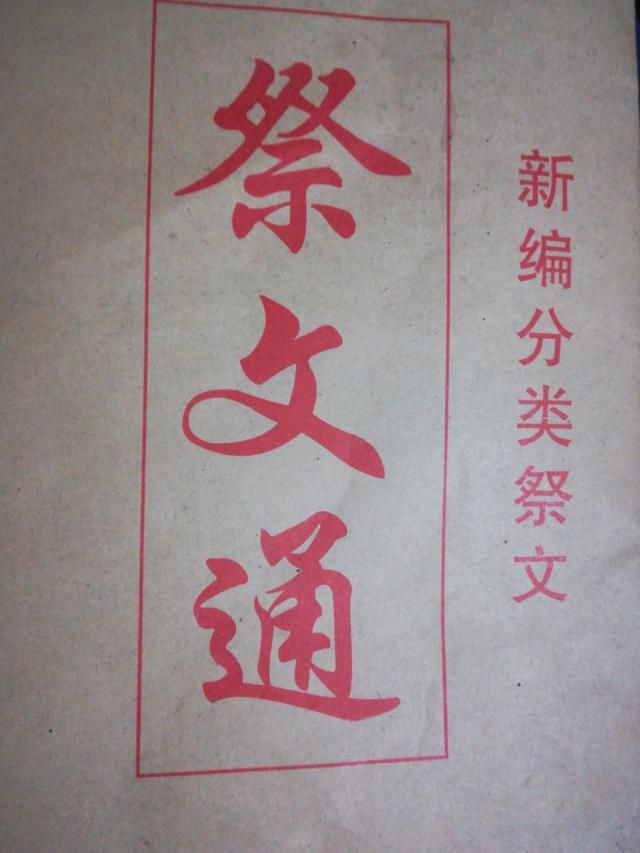 新编分类祭文
祭文通